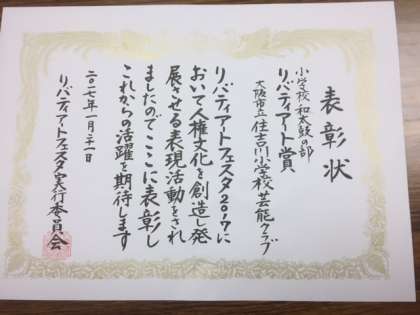 表彰状
小学校 和太鼓の部
リバティアート賞
大阪市立住吉川小学校芸能クラブ
リバティアートフェスタ2017に
おいて人権文化を創造し発
展させる表現活動をされ
ましたのでここに表彰し
これからの活躍を期待します
二〇一七年一月二十一日
リバティアートフェスタ実行委員会